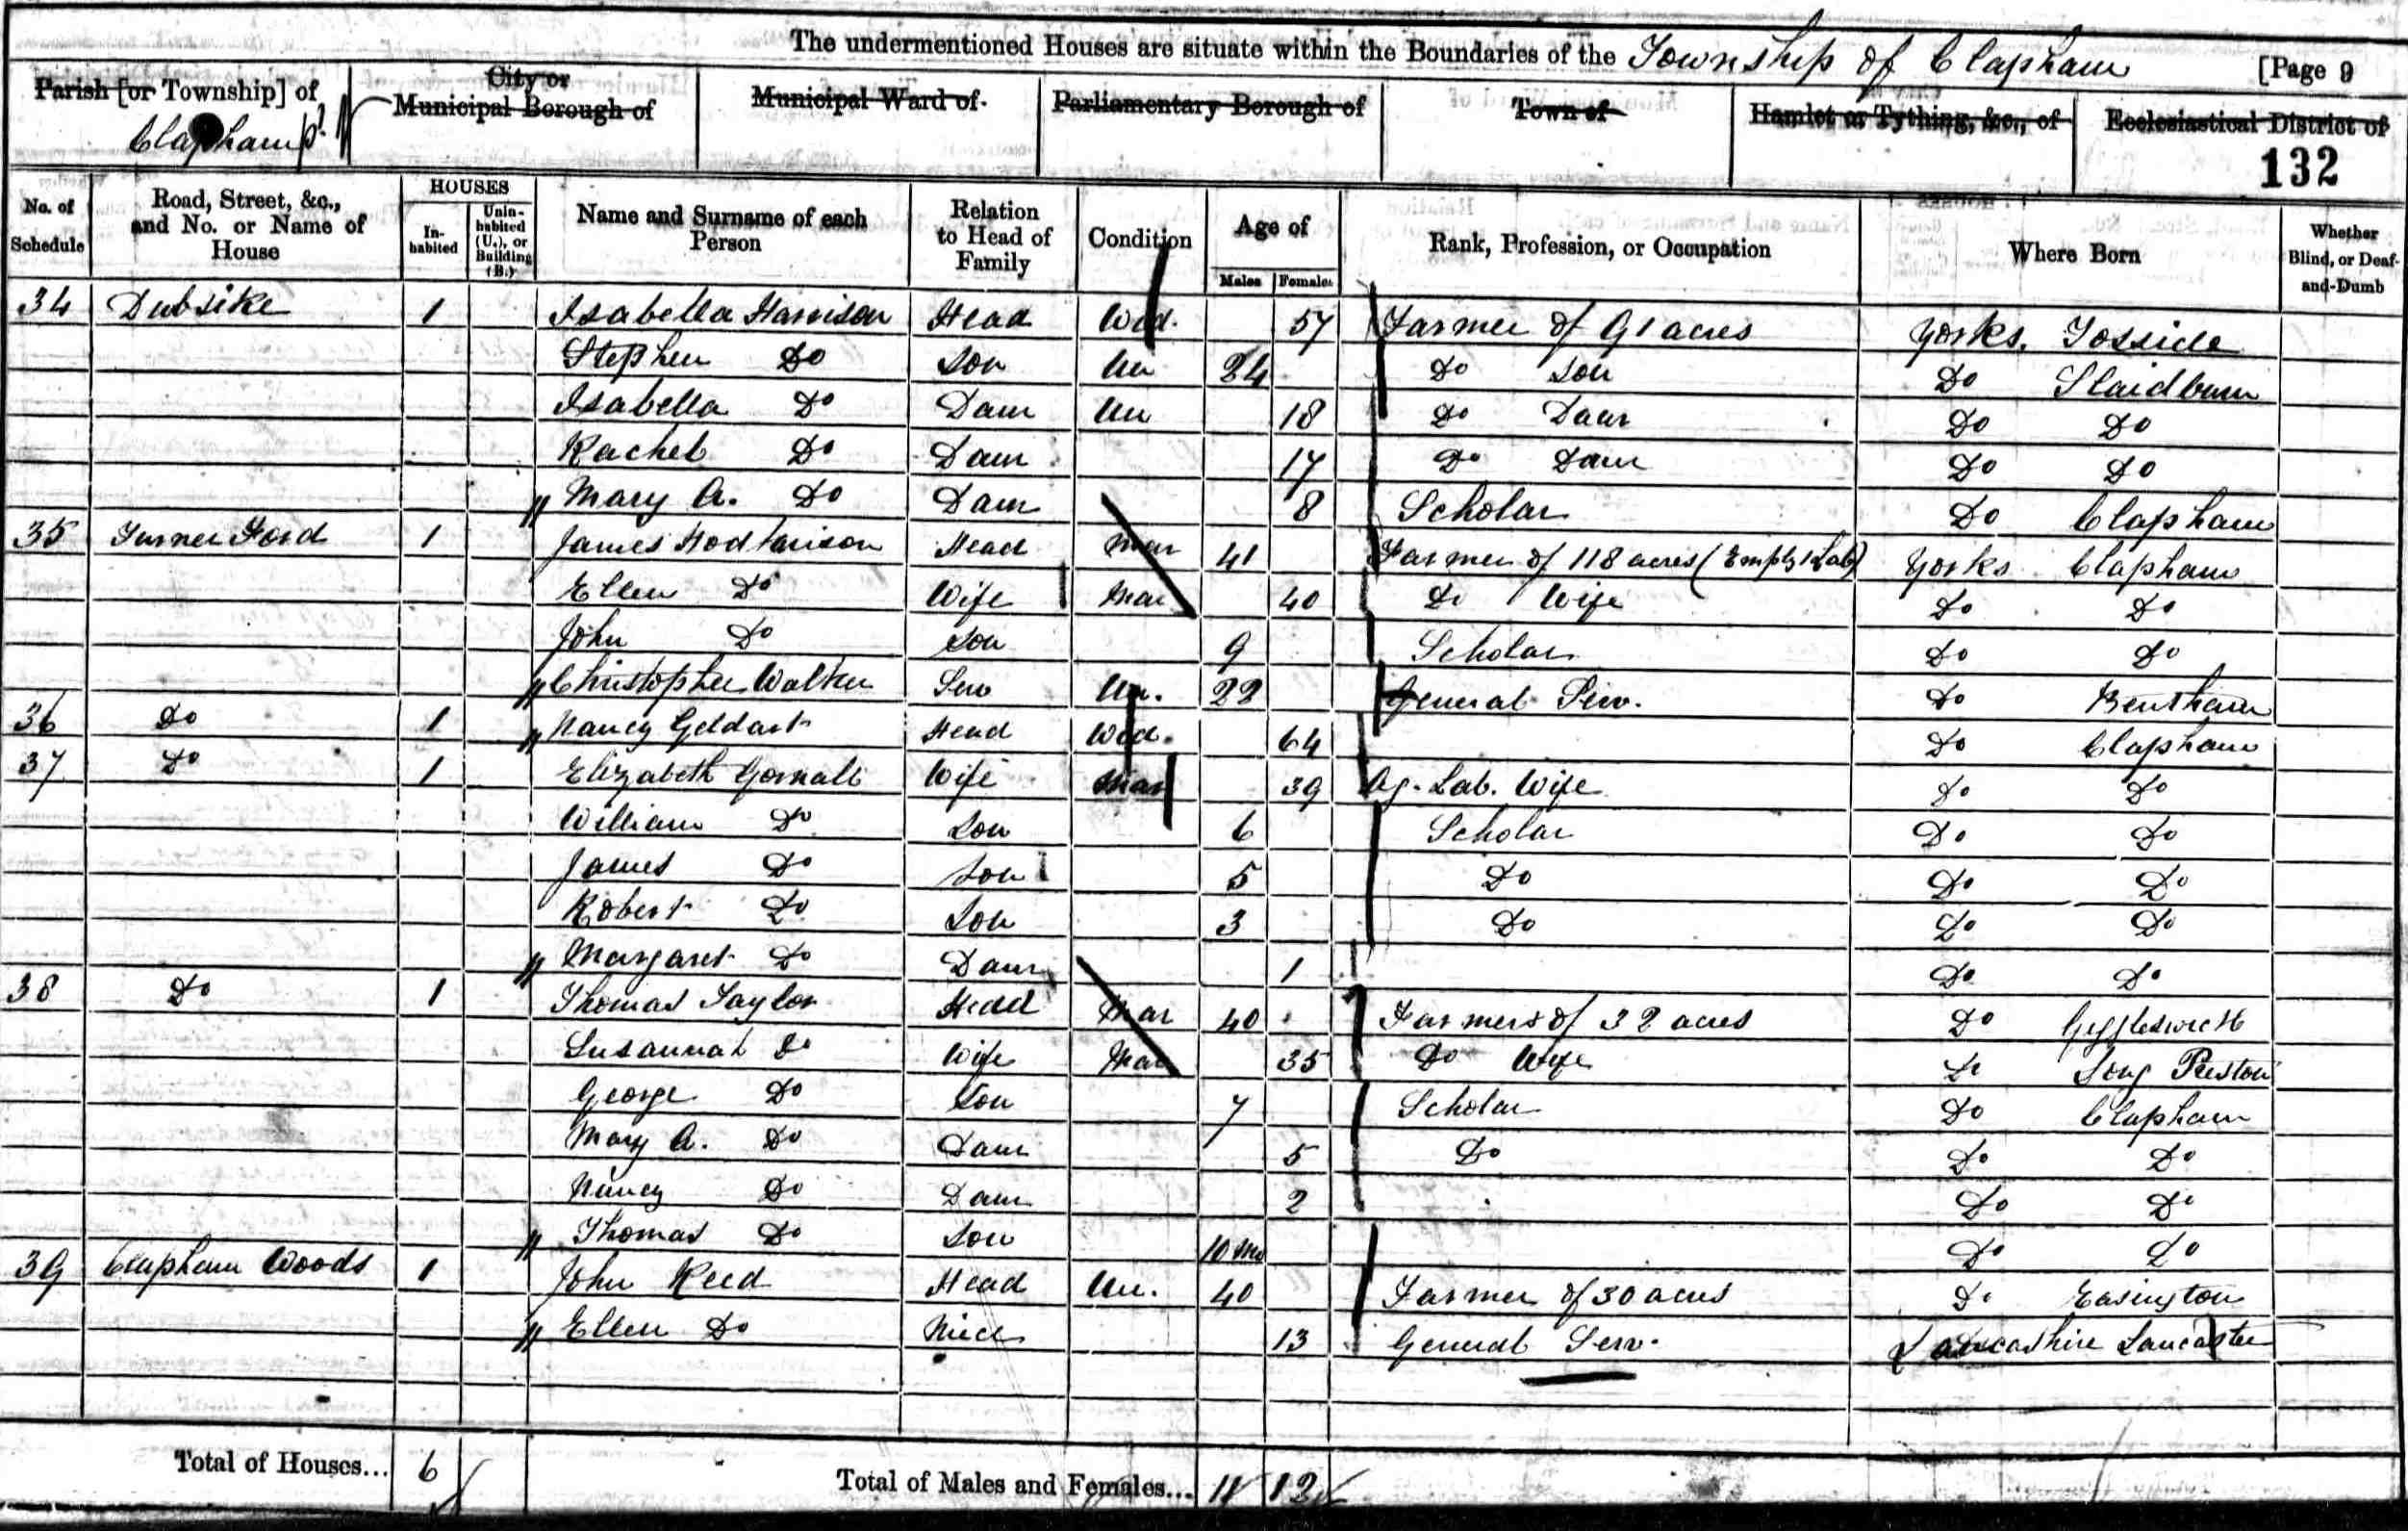 The undermentioned Houses are situate within the Boundaries of the Township of Clapham [Page 9
Parish [or Township] of Clapham City or Municipal Borough of Municipal Ward of Parliamentary Borough of Town of Hamlet or Tything, &c., of Ecclesiastical District of
132
No. of Schedule Road, Street, &c., and No. or Name of House HOUSES Inhabited Uninhabited (U.), or Building (B.) Name and Surname of each Person Relation to Head of Family Condition Age of Males Females Rank, Profession, or Occupation Where Born Whether Blind, or Deaf-and-Dumb
34 Dubsike 1 Isabella Harrison Head Wid. 57 Farmer of 91 acres Yorks. Tosside
Stephen Do Son Un 24 Do Son Do Slaidburn
Isabella Do Daur Un 18 Do Daur Do Do
Rachel Do Daur 17 Do Daur Do Do
Mary A. Do Daur 8 Scholar Do Clapham
35 Turner Ford 1 James Head Mar 41 Farmer of 118 acres (Empl 1 Lab) Yorks Clapham
Ellen Do Wife Mar 40 Do Wife Do Do
John Do Son 9 Scholar Do Do
Christopher Walker Serv Un. 22 General Serv. Do Bentham
36 Do 1 Nancy Geldart Head Wid. 64 Do Clapham
37 Do 1 Elizabeth Gornall Wife Mar 39 Ag. Lab. Wife Do Do
William Do Son 6 Scholar Do Do
James Do Son 5 Do Do Do
Robert Do Son 3 Do Do Do
Margaret Do Daur 1 Do Do
38 Do 1 Thomas Taylor Head Mar 40 Farmer of 32 acres Do Giggleswick
Susannah Do Wife Mar 35 Do Wife Do Long Preston
George Do Son 7 Scholar Do Clapham
Mary A. Do Daur 5 Do Do Do
Nancy Do Daur 2 Do Do
Thomas Do Son 10 Mo Do Do
39 Clapham Woods 1 John Reed Head Un. 40 Farmer of 30 acres Do Easington
Ellen Do Niece 13 General Serv. Lancashire Lancaster
Total of Houses... 6 Total of Males and Females... 11 12